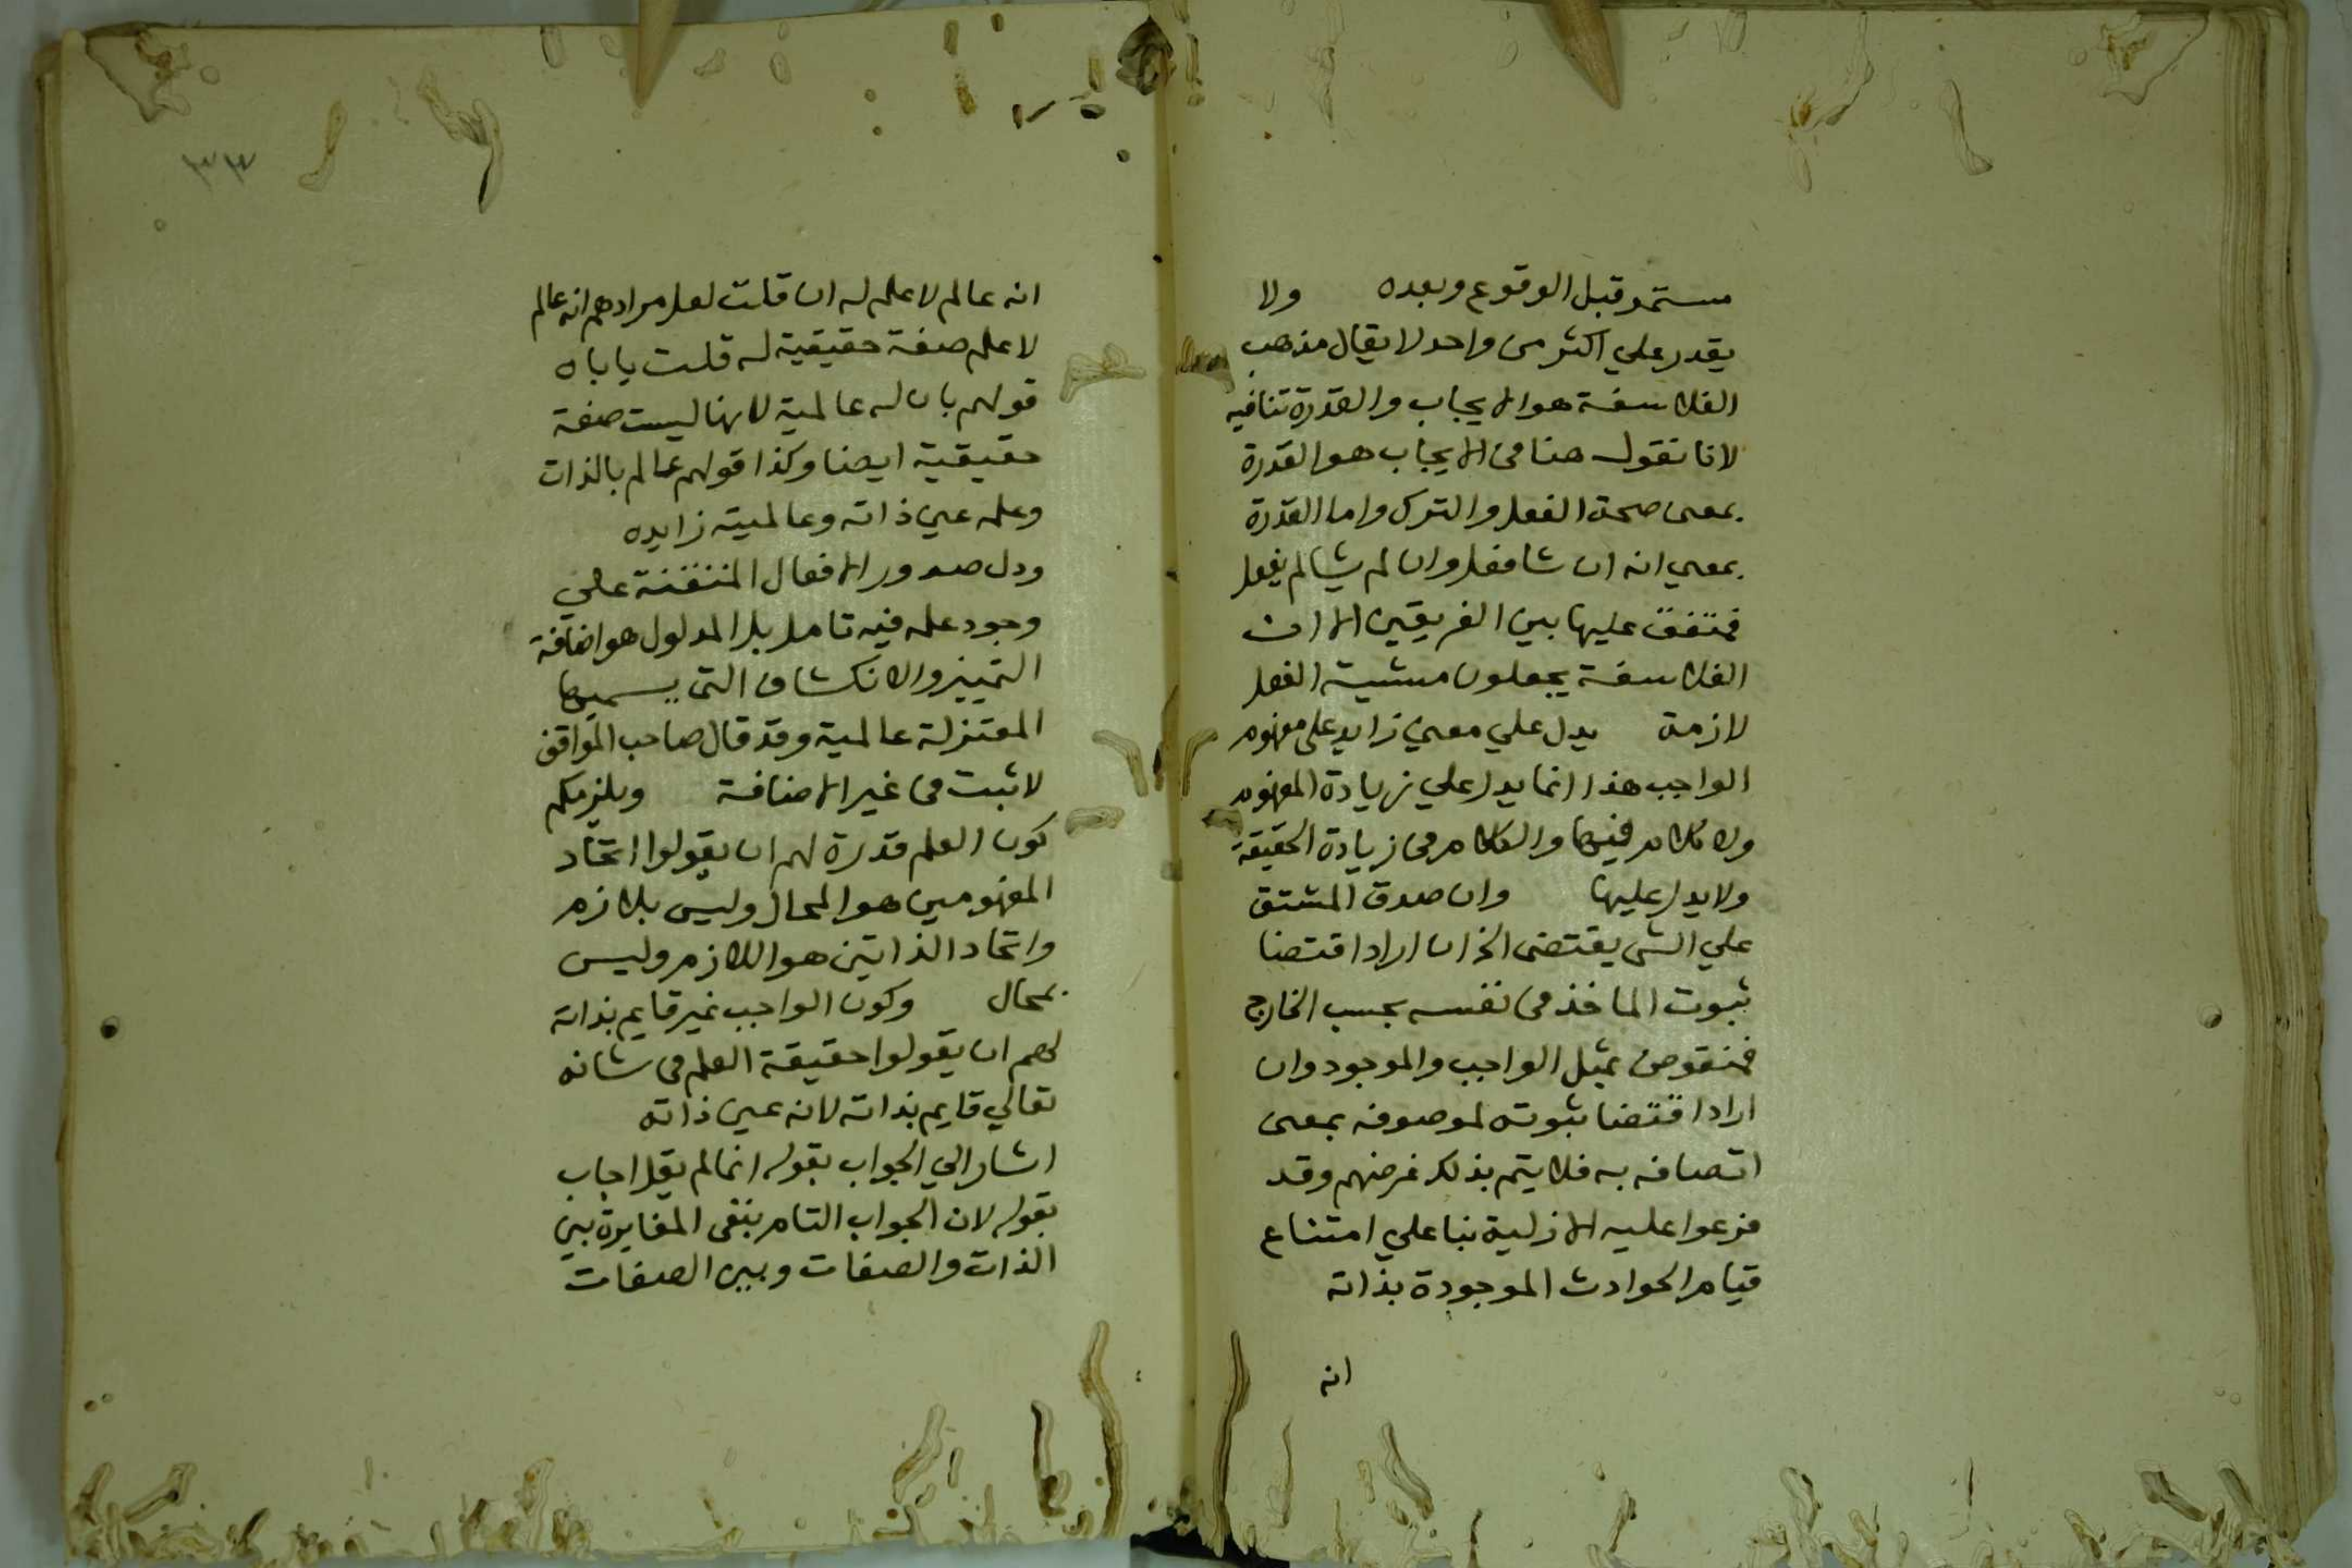 مستمر قبل الوقوع وبعده ولا
يقدر علي اكثر من واحد لا يقال مذهب
الفلاسفة هو الايجاب والقدرة تنافيه
لانا نقول منافي الايجاب هو القدرة
بمعني صحة الفعل والترك واما القدرة
بمعني انه ان شا فعل وان لم يشا لم يفعل
فمتفق عليها بين الفريقين الا ان
الفلاسفة يجعلون مشية الفعل
لازمة يدل علي معني زايد علي مفهوم
الواجب هذا انما يدل علي زيادة المفهوم
ولا كلام فيها والكلام في زيادة الحقيقة
ولا يدل عليها وان صدق المشتق
علي الشي يقتضي الخ ان اراد اقتضا
ثبوت الماخذ في نفسه بحسب الخارج
فمنقوض بمثل الواجب والموجود وان
اراد اقتضا ثبوته لموصوفه بمعني
اتصافه به فلا يتم بذلك غرضهم وقد
فرعوا عليه الازلية بنا علي امتناع
قيام الحوادث الموجودة بذاته
انه
٣٣
انه عالم لا علم له ان قلت لعل مرادهم انه عالم
لا علم صفة حقيقية له قلت ياباه
قولهم بان له عالمية لانها ليست صفة
حقيقية ايضا وكذا قولهم عالم بالذات
وعلمه عين ذاته وعالميته زايده
ودل صدور الافعال المتقنة علي
وجود علمه فيه تامل بل المدلول هو اضافة
التمييز والانكشاف التي يسميها
المعتزلة عالمية وقد قال صاحب المواقف
لا ثبت في غير الاضافة ويلزمكم
كون العلم قدرة لهم ان يقولوا اتحاد
المفهومين هو المحال وليس بلازم
واتحاد الذاتين هو اللازم وليس
بمحال وكون الواجب غير قايم بذاته
لهم ان يقولوا حقيقة العلم في شانه
تعالي قايم بذاته لانه عين ذاته
اشار الي الجواب بقوله انما لم يقل اجاب
بقوله لان الجواب التام بنفي المغايرة بين
الذات والصفات وبين الصفات